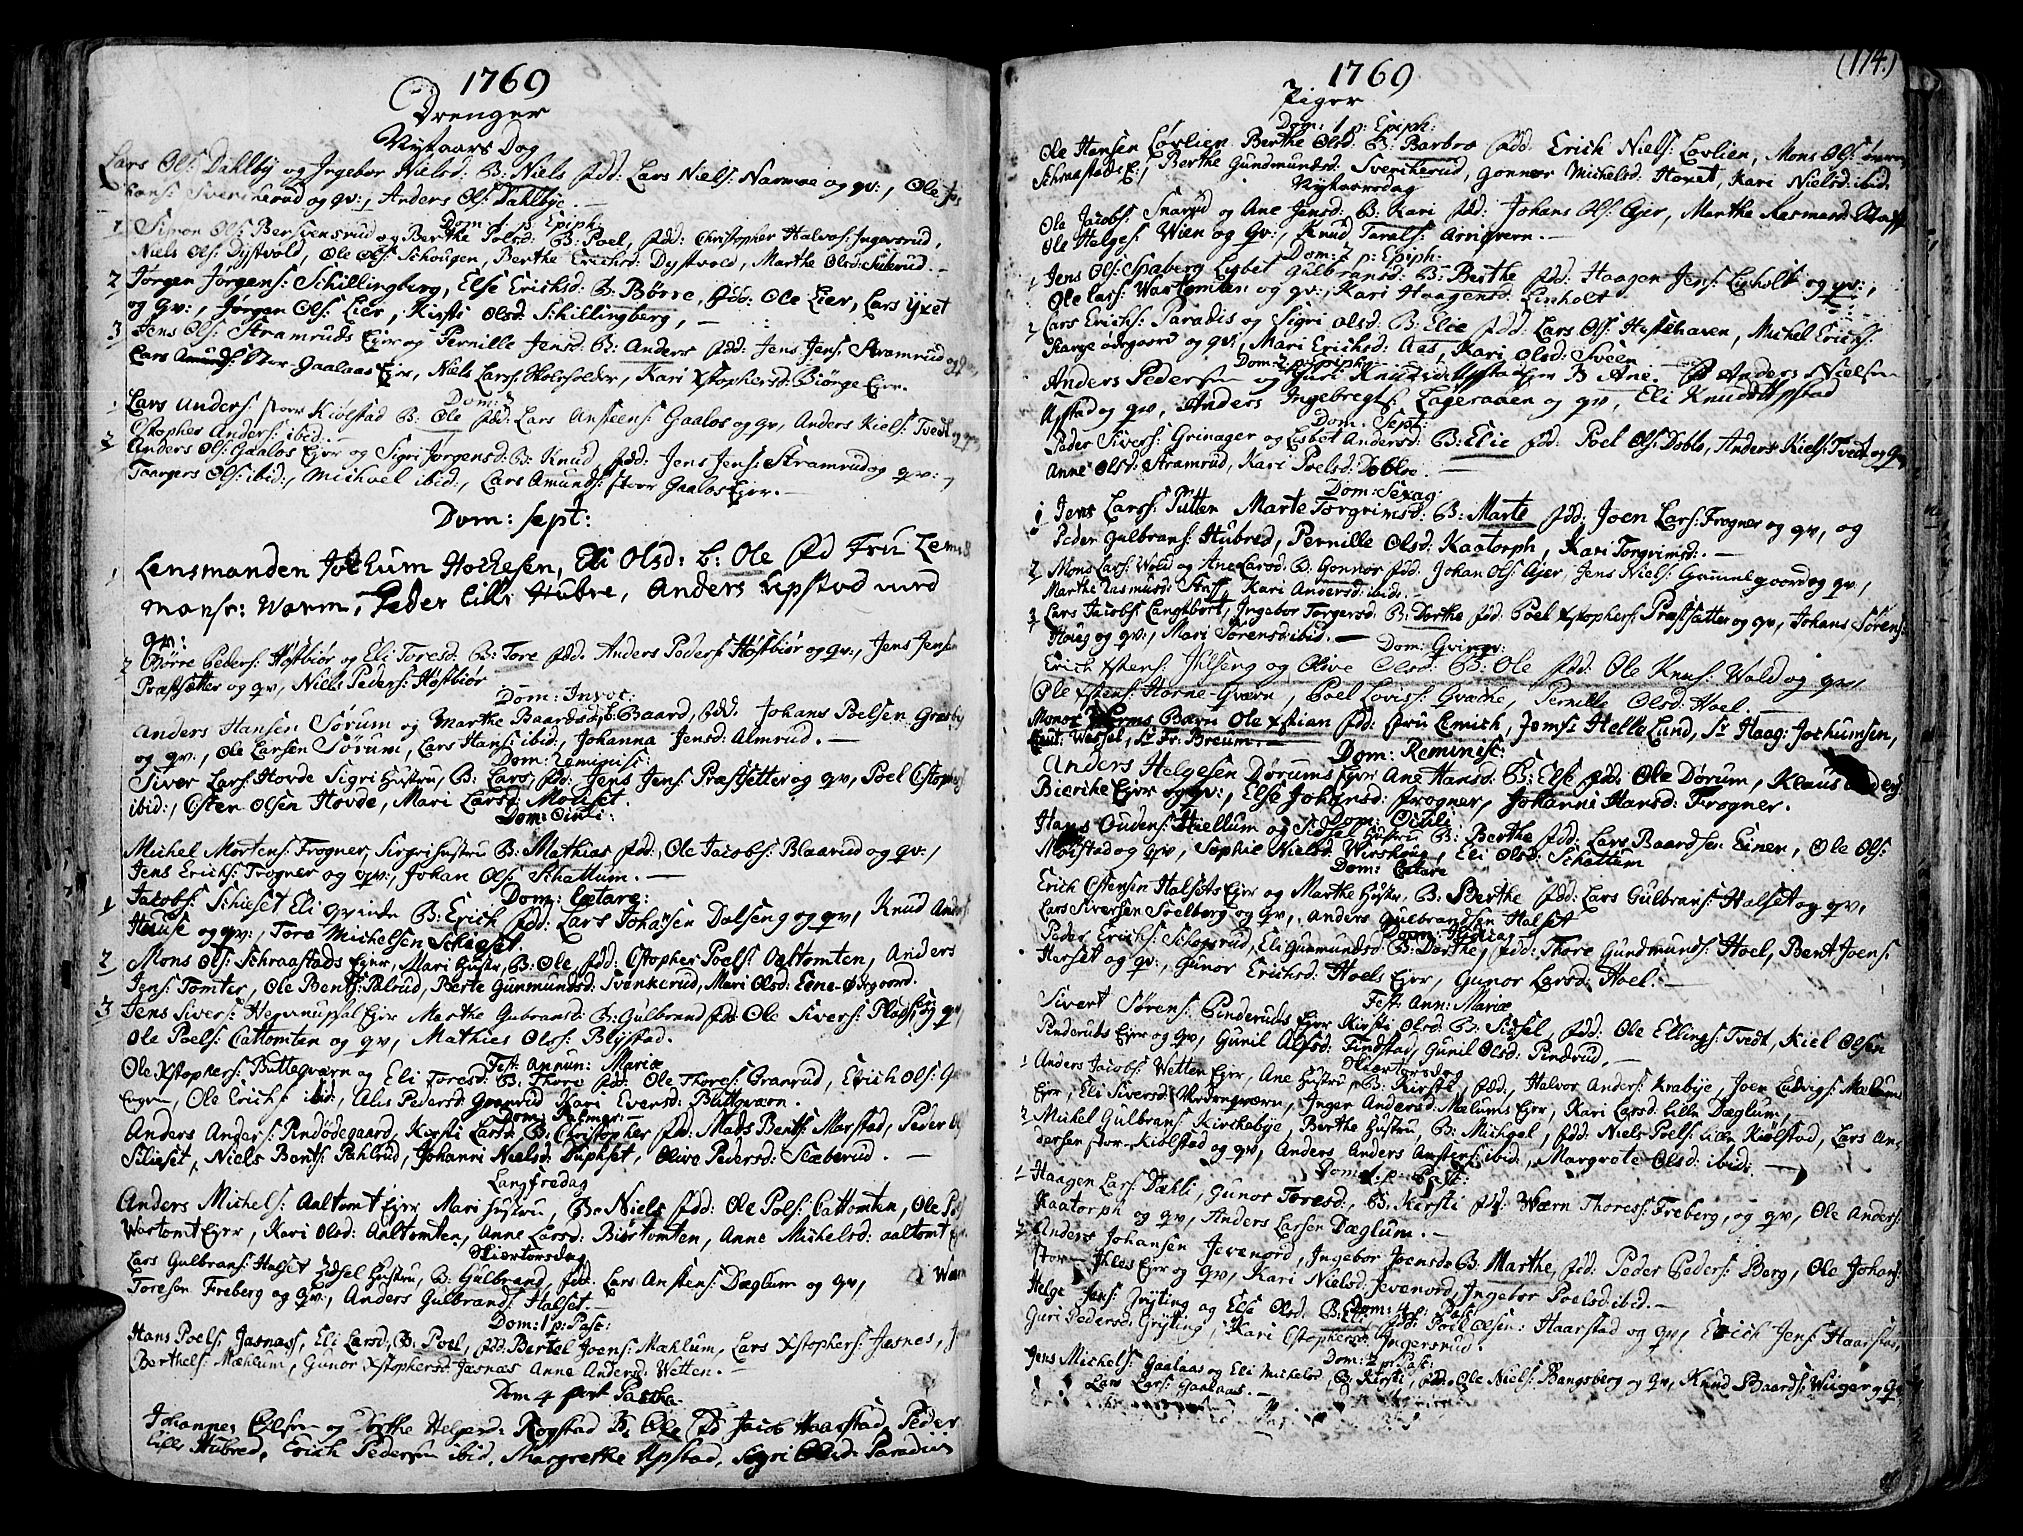 1769
Drenger
Nytaars Dag
Lars Ols: Dahlby og Ingebor Nielsd: B: Niels fdd: Lars Niels: Narmoe og qv:, Ole
Svericherud og qv:, Anders Ols: Dahlbye. —
Dom: 1 p: Epiph:
1 Simon Ols: Bersvensrud og Berthe Polsd: B: Poel, fdd: Christopher Halvors: Ingersrud,
Niels Ols: Dystvold, Ole Ols: Schougen, Berthe Erichsd: Dystvold, Marthe Olsd:
2 Jørgen Jørgens: Schillingberg, Else Erichsd: B: Børre, fdd: Ole Lier, Lars
og qv:, Jørgen Ols: Lier, Kirsti Olsd: Schillingberg, —
3 Jens Ols: Stramruds Ejer og Pernille Jensd: B: Anders fdd: Jens Jens: Stramrud og
Lars Amunds: Stor-Gaalaas Ejer, Niels Lars: Kari Xstophersd: Biørge Ejer.
Dom: 3
1 Lars Anders: stoer Kiølstad B: Ole fdd: Lars Ansteens: Gaalos og qv, Anders Kiels: Tvedt og qv
Cstopher Anders: ibid. —
2 Anders Ols: Gaalos Ejer og Sigri Jorgensd: B: Knud fdd: Jens Jens: Stramrud og qv:,
Taargers Ols: ibid:, Michael ibid:, Lars Amunds: stoer Gaalos Ejer. —
Dom: sept:
1 Lensmanden Jochum Hochesen, Eli Olsd: b: Ole fd Fru
Mons: Warm, Peder Lille Hubre, Anders Upstad med
qv:
2 Børre Peders: Høstbiør og Eli Toresd: B: Tore fdd. Anders Peders: Høstbiør og qv:, Jens Jens
Præstsetter og qv, Niels Peders: Høstbiør
Dom: Invoc:
Anders Hansen Sørum og Marthe Baardsd: B: Baard, fdd. Johans Poelsen
og qv:, Ole Larsen Sørum, Lars Hans: ibid:, Johanna Jensd: Almrud. —
Dom: Reminisc:
Siver Lars: Hovde Sigri Hustru, B: Lars, fdd: Jens Jens: Præstsetter og qv, Poel Cstophers
ibid:, Østen Olsen Hovde, Mari Larsd:
Dom: Oculi:
Michel Mortens: Frogner, Sigri Hustru B: Mathias fdd:, Ole Jacobs: Blaarud og qv:,
Jens Erichs: Frogner og qv:, Johan Ols: Schattum. —
Dom: Lætare:
1 Jacobs: Schieset Eli qvinde B: Erich fdd: Lars Johansen Dalseng og qv, Knud
og qv:, Tore Michelsen Schieset.
2 Mons Ols: Schraastads Ejer, Mari Hustr, B: Ole fdd: Cstopher Poels: Aaltomten, Anders
Jens: Tomter, Ole Bents: Pelrud, Berte Gunmundsd: Svenkerud, Mari Olsd:
3 Jens Sivers: Ejer Marthe Gubransd: B: Gulbrand fdd: Ole Sivers: og qv,
Ole Poels: Cattomten og qv, Mathies Olss: Blystad.
Fest: Annun: Mariæ
Ole Xstophers: Buttegværn og Eli Toresd: B: Thore fdd: Ole Thores: Granrud, Erich Ols:
Ole Erichs: ibid:, Peders: Granrud Kari Evensd: Buttgværn.
Dom: Palmar: —
Anders Anders: Pindødegaard, Kirsti Larsd: B: Christopher fdd: Mads Bents: Marstad, Peder
Schieset, Niels Bents: Pahlrud, Johanne Nielsd: Olive Pedersd: Slæberud. —
Langfredag
Anders Michels: Aaltomt Ejer Mari Hustru, B: Niels fdd: Ole Pols: Cattomten, Ole
Wartomt Ejer, Kari Olsd: Aaltomten, Anne Larsd: Biørtomten, Anne Michelsd: aaltomt
Skiertorsdag
Lars Gulbrans: Halset Hustru, B: Gulbrand, fdd: Lars Anstens: Dæglum og qv,
Toresen Freberg og qv:, Anders Gulbrands: Halset. —
Dom: 1 p: Past:
Hans Poels: Jasnæss, Eli Larsd: B: Poel, fdd: Bertel Joens: Mæhlum, Lars Xstophers: Jesnes,
Berthels: Mæhlum, Gunor Xstophersd: Jasnæs Anne Andersd: Wetten. —
Dom 4 post Pascha
Johannes og Dorthe Helgesd: Rogstad B: Ole fd Jacob Haarstad, Peder
Lille Hubred, Erich Pedersen ibid, Margrethe Upstad, Sigri Paradiis
(174.)
1769
Piger
Dom: 1 p: Epiph:
Ole Hansen Løvlien Berthe Olsd: B: Barbro fdd: Erich Niels: Løvlien, Mons Ols:
Schraastads E:, Berthe Gundmundsd: Svericherud, Gonnor Michelsd: Hoxet, Kari Nielsd: ibid:
Nytaarsdag
Ole Jacobs: Snarud og Ane Jensd: B: Kari fdd: Johans Ols: Ajer, Marthe Rasmusd:
Ole Helges: Wien og qv:, Knud Tarals: Arnqvern. —
Dom: 2 p: Epiph:
1 Jens Ols: Spaberg Lisbet Gulbransd: B: Berthe fdd: Haagen Jens: Linholt og qv:,
Ole Lars: Wartomten og qv:, Kari Haagensd: Linholt.
2 Lars Erichs: Paradis og Sigri Olsd: B: Elie fdd: Lars Ols: Michel Erichs:
Kange ødegaard og qv, Mari Erichsd: Aas, Kari Olsd: Sveen
Dom: 2 p: Epiph:
Anders Pedersen og Guri Knudsd: Upstad Ejer B Ane. fd Anders Nielsen
Upstad og qv, Anders Ingebregts: Lageraaen og qv, Eli Knudsd Upstad
Dom. Sept:
Peder Sivers: Grinager og Lisbet Andersd: B: Elie fdd: Poel Ols: Doblo, Anders Kiels: Tvedt og qv
Anne Olsd: Stramrud, Kari Poelsd: Dobloe. —
Dom: Sexag:
1 Jens Lars: Putten Marte Torgrimsd: B: Marte fdd: Joen Lars: Frogner og qv, og
Peder Gulbrans: Hubred, Pernille Olsd: Kaatorph, Kari Torgrimsd: —
2 Mons Lars: Wold og Ane Larsd: B: Gonnor fdd: Johan Ols: Ajer, Jens Niels: Gammelgaard og qv:,
Marthe Rasmusd: Kari Andersd: ibid: —
3 Lars Jacobs: Langtbort, Ingebor Torgersd: B: Dorthe fdd: Poel Xstophers: Præstsetter og qv, Johans Sørens:
Houg og qv:, Mari Sorensd: ibid. —
Dom: Qvinqv:
Erich Xstens: Julseng og Olive Olsd: B: Ole fdd: Ole Knuts: Wold og qv,
Ole Xstens: Horne-Qværn, Poel Lovis: Qværne, Pernille Olsd: Hoel. —
Monsr Wærms Barn Ole Xstian fdd: fru Lemich, Jomfr Helle Lund, Sr Haag: Jochumsen,
Leut: Wessel, Sr Fr: Breum. —
Dom: Reminesc:
Anders Helgesen Dørums Ejer Ane Hansd: B: Else fdd: Ole Dørum, Klaus
Bierike Ejer og qv:, Else Johansd: Frogner, Johanne Hansd: Frogner.
Dom: Oculi
Hans Oudens: Hiellum og Sidsel Hustru B: Berthe fdd: Lars Baardsen Einer, Ole Ols:
Moistad og qv, Sophie Nielsd: Eli Olsd: Schattum
Dom: Lætare
Erich Østensen Halsets Ejer og Marthe Hustr, B: Berthe fdd: Lars Gulbrans: Halset og qv,
Lars Siversen Soelberg og qv, Anders Gulbrandsen Halset
Dom: Judica
Peder Erichs: Eli Gunmundsd: B: Dorthe, fdd: Thore Gundmunds: Hoel, Bent Joens:
Herset og qv:, Gunor Erichsd: Hoel Ejer, Gunor Larsd: Hoel. —
Fest: Ann: Mariæ
Sivert Sørens: Pinderuds Ejer Kirsti Olsd: B: Sidsel, fdd: Ole Ellings: Tvedt, Kiel Olsen
Pinderuds Ejer og qv, Gunil Alfsd: Findstad, Gunil Olsd: Pindrud, —
Skiertorsdag
1 Anders Jacobs: Wetten Ejer, Ane Hustru, B: Kirsti, fdd: Halvor Anders: Krabye, Joen Ludvigs: Mælum
Ejer, Eli Siversd: Inger Andersd: Mælums Ejer, Kari Larsd: Lille Dæglum, —
2 Michel Gulbrans: Kirckebye, Berthe Hustru, B: Michgel, fdd: Niels Poels: Lille Kiølstad, Lars An-
dersen stor-Kiølstad og qv, Anders Anders: ibid:, Margrete Olsd: ibid: —
Dom: 1. p: Past:
1 Haagen Lars: Dæhli, Gunor Toresd:, B: Kirsti fd: Wærn Thores: Freberg, og qv, Ole Anders:
Kaatorph og qv, Anders Larsen Dæglum. —
2 Anders Johansen Jevenord, Ingebor Joensd: B: Marthe, fdd: Peder Peders: Berg, Ole Johans
stor-Ihles Ejer og qv, Kari Nielsd: Jevenord, Ingebor Poelsd: ibid. —
Dom: 4 p: Past:
Helge Jens: Gryting og Else Olsd: B: Else fdd: Poel Haarstad og qv, Erich Jens: Haarstad
Guri Pedersd: Gryting, Kari Cstophersd: Ingersrud.
Dom: 2 p: Past:
Jens Michels: Gaalaas og Eli Michelsd B: Kirsti, fdd: Ole Niels: Bangsberg og qv, Knud Baards: og qv
Lars Lars: Gaalaas. —